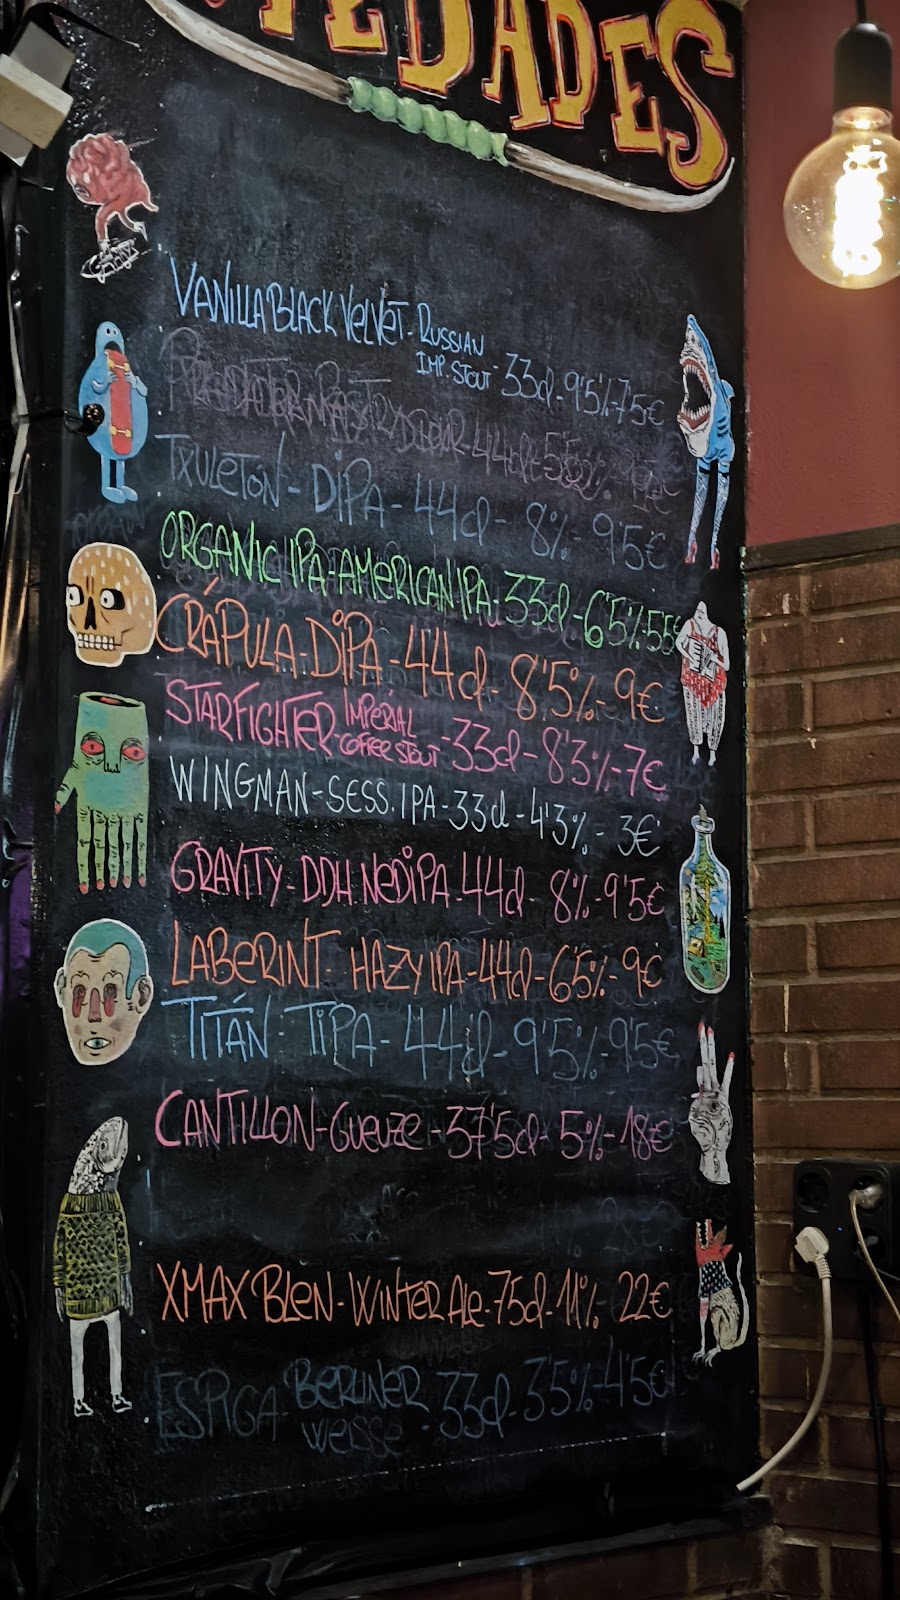 EDADES
VANILLA BLACK VELVET - RUSSIAN IMP. STOUT - 33cl - 9'5% - 7'5€
TXULETON - DIPA - 44cl - 8% - 9'5€
ORGANIC IPA - AMERICAN IPA - 33cl - 6'5% - 5'5€
CRÁPULA - DIPA - 44cl - 8'5% - 9€
STARFIGHTER IMPERIAL COFFEE STOUT - 33cl - 8'3% - 7€
WINGMAN - SESS. IPA - 33cl - 4'3% - 3€
GRAVITY - DDH NEDIPA - 44cl - 8% - 9'5€
LABERINT - HAZY IPA - 44cl - 6'5% - 9€
TITÁN - TIPA - 44cl - 9'5% - 9'5€
CANTILLON - GUEUZE - 37'5cl - 5% - 18€
28€
XMAX BLEN - WINTER ALE - 75cl - 11% - 22€
ESPIGA - BERLINER WEISSE - 33cl - 3'5% - 4'5€